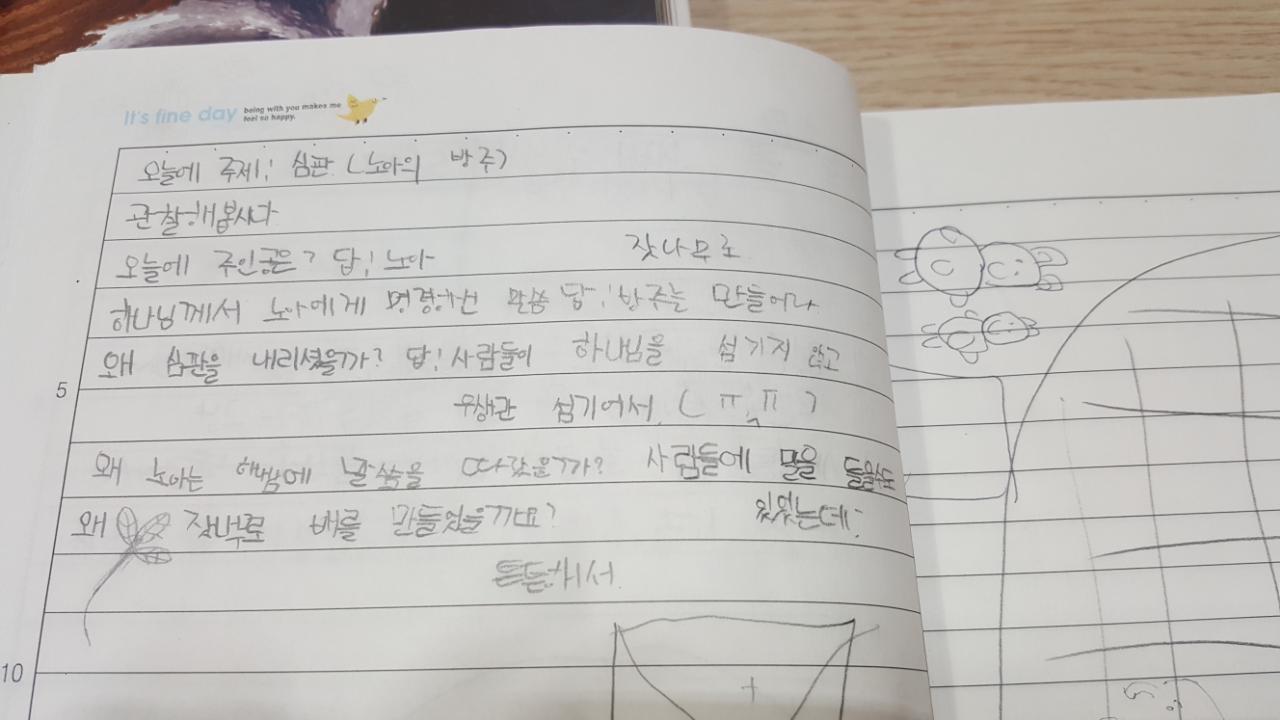 It's fine day being with you makes me
feel so happy.
오늘에 주제: 심판 (노아의 방주)
관찰해봅시다
오늘에 주인공은? 답: 노아 잣나무로
하나님께서 노아에게 명령하신 말씀 답: 방주를 만들어라
왜 심판을 내리셨을가? 답: 사람들이 하나님을 섬기지 않고
5
우상만 섬기어서, (ㅠ,ㅠ)
왜 노아는 말씀을 따랐을가? 사람들에 말을 들을수도
왜 잣나무로 배를 만들었을까요? 있었는데
튼튼해서.
10